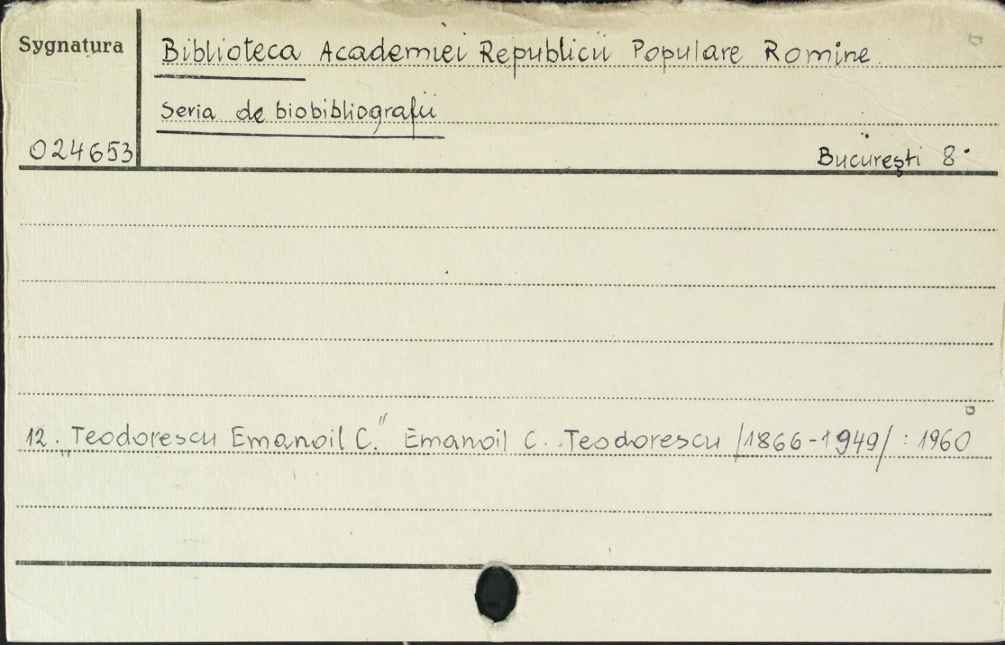 Sygnatura
Biblioteca Academiei Republicii Populare Romine
Seria de biobibliografii
024653
Bucureşti 8°
12. „Teodorescu Emanoil C.” Emanoil C. Teodorescu /1866-1949/ : 1960